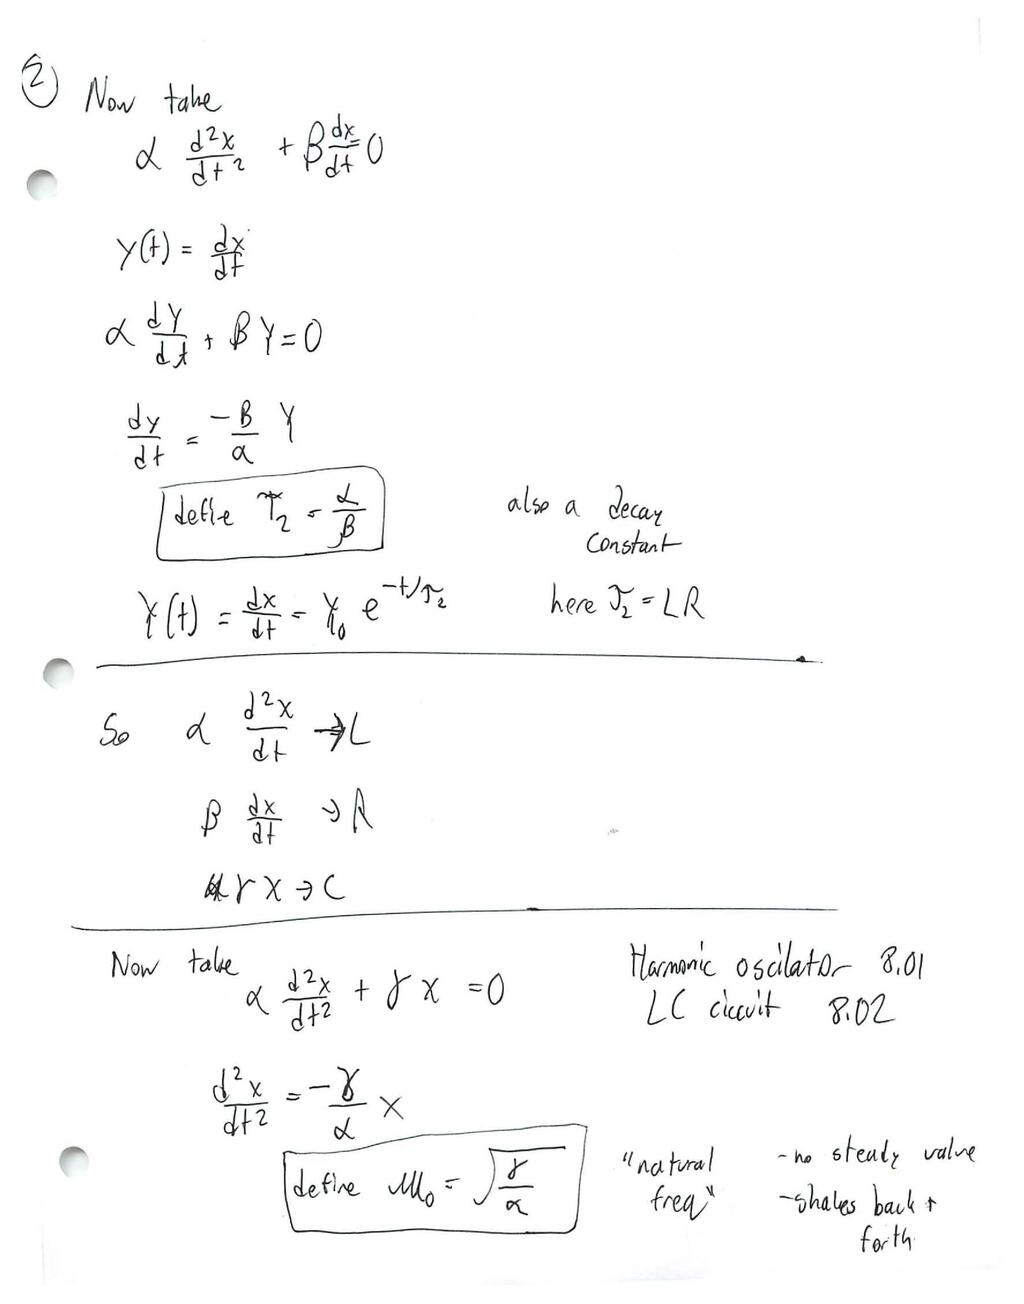 ②
Now take
α d²x/dt² + β dx/dt = 0
Y(t) = dx/dt
α dY/dt + βY = 0
dy/dt = -β/α Y
defie τ₂ = α/β
also a decay
constant
Y(t) = dx/dt = Y₀ e^(-t/τ₂)
here τ₂ = LR
So α d²x/dt → L
β dx/dt → R
γ x → C
Now take
α d²x/dt² + γ x = 0
Harmonic oscilator 8.01
LC circuit 8.02
d²x/dt² = -γ/α x
define ω₀ = √(γ/α)
"natural
freq"
- no steady value
- shakes back +
forth